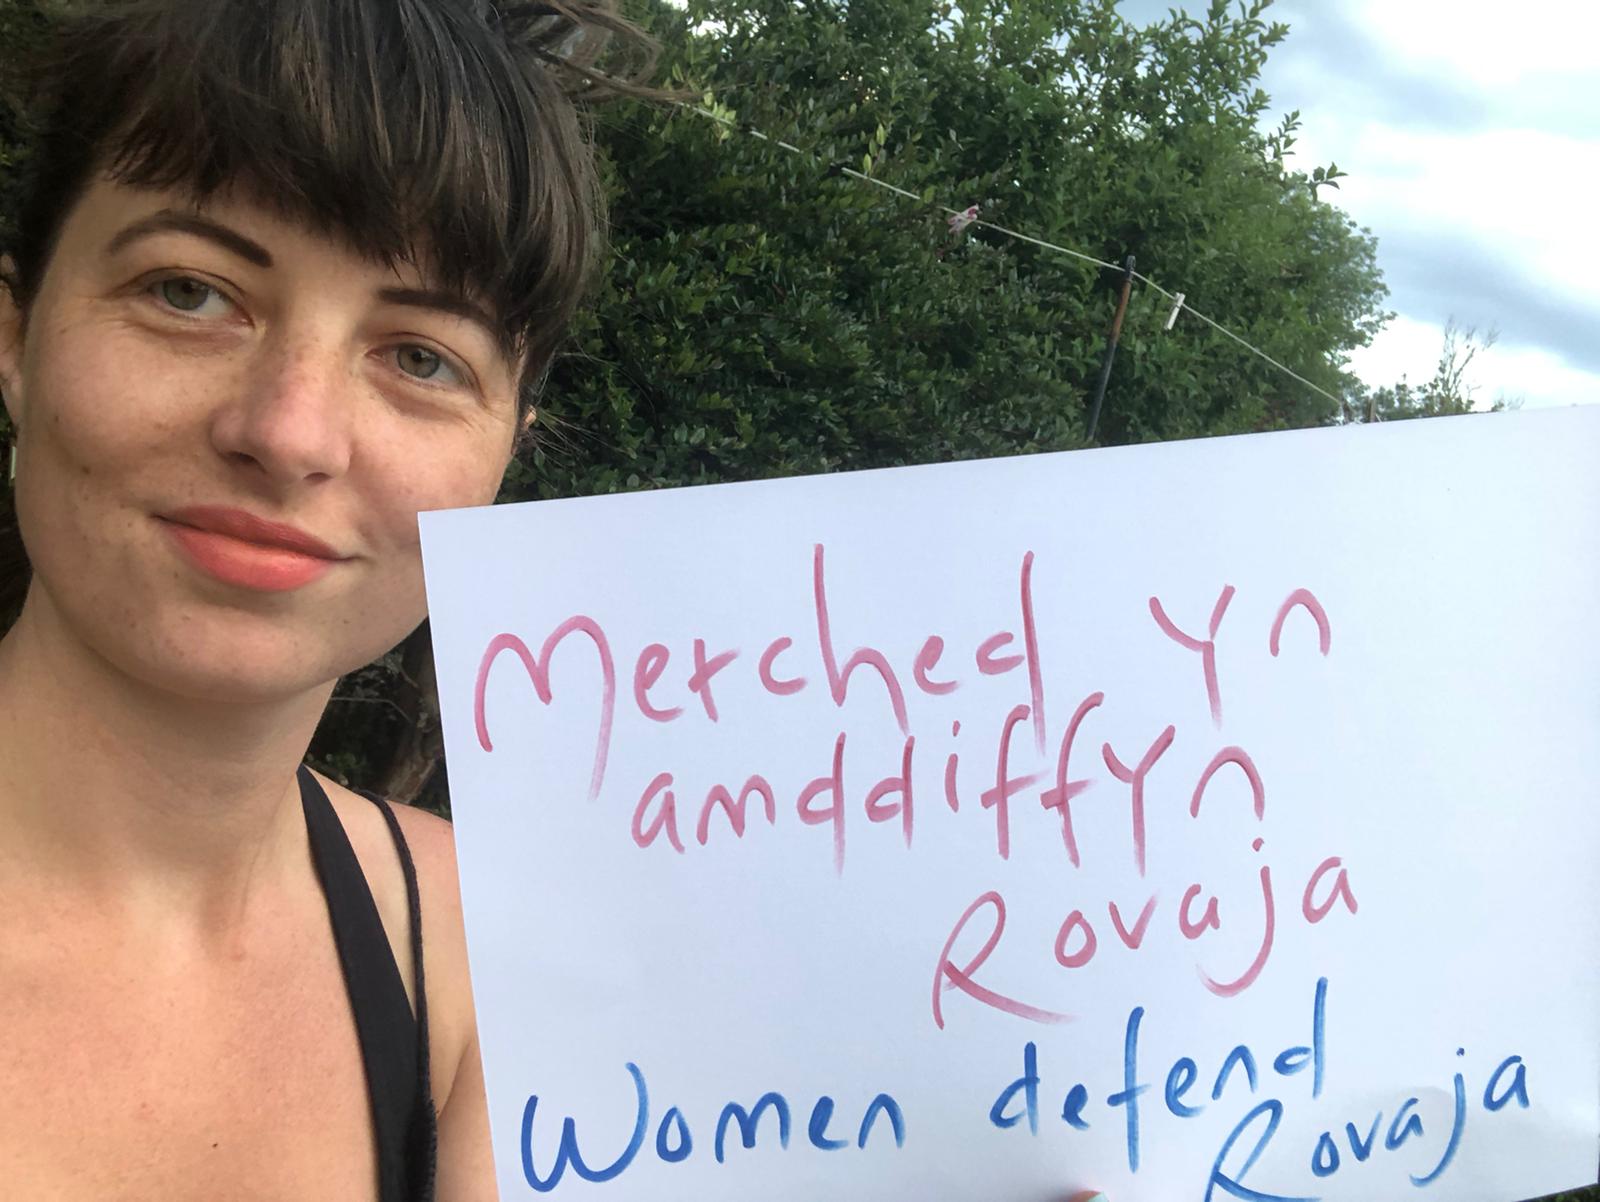 Merched yn
amddiffyn
Rovaja
Women defend
Rovaja